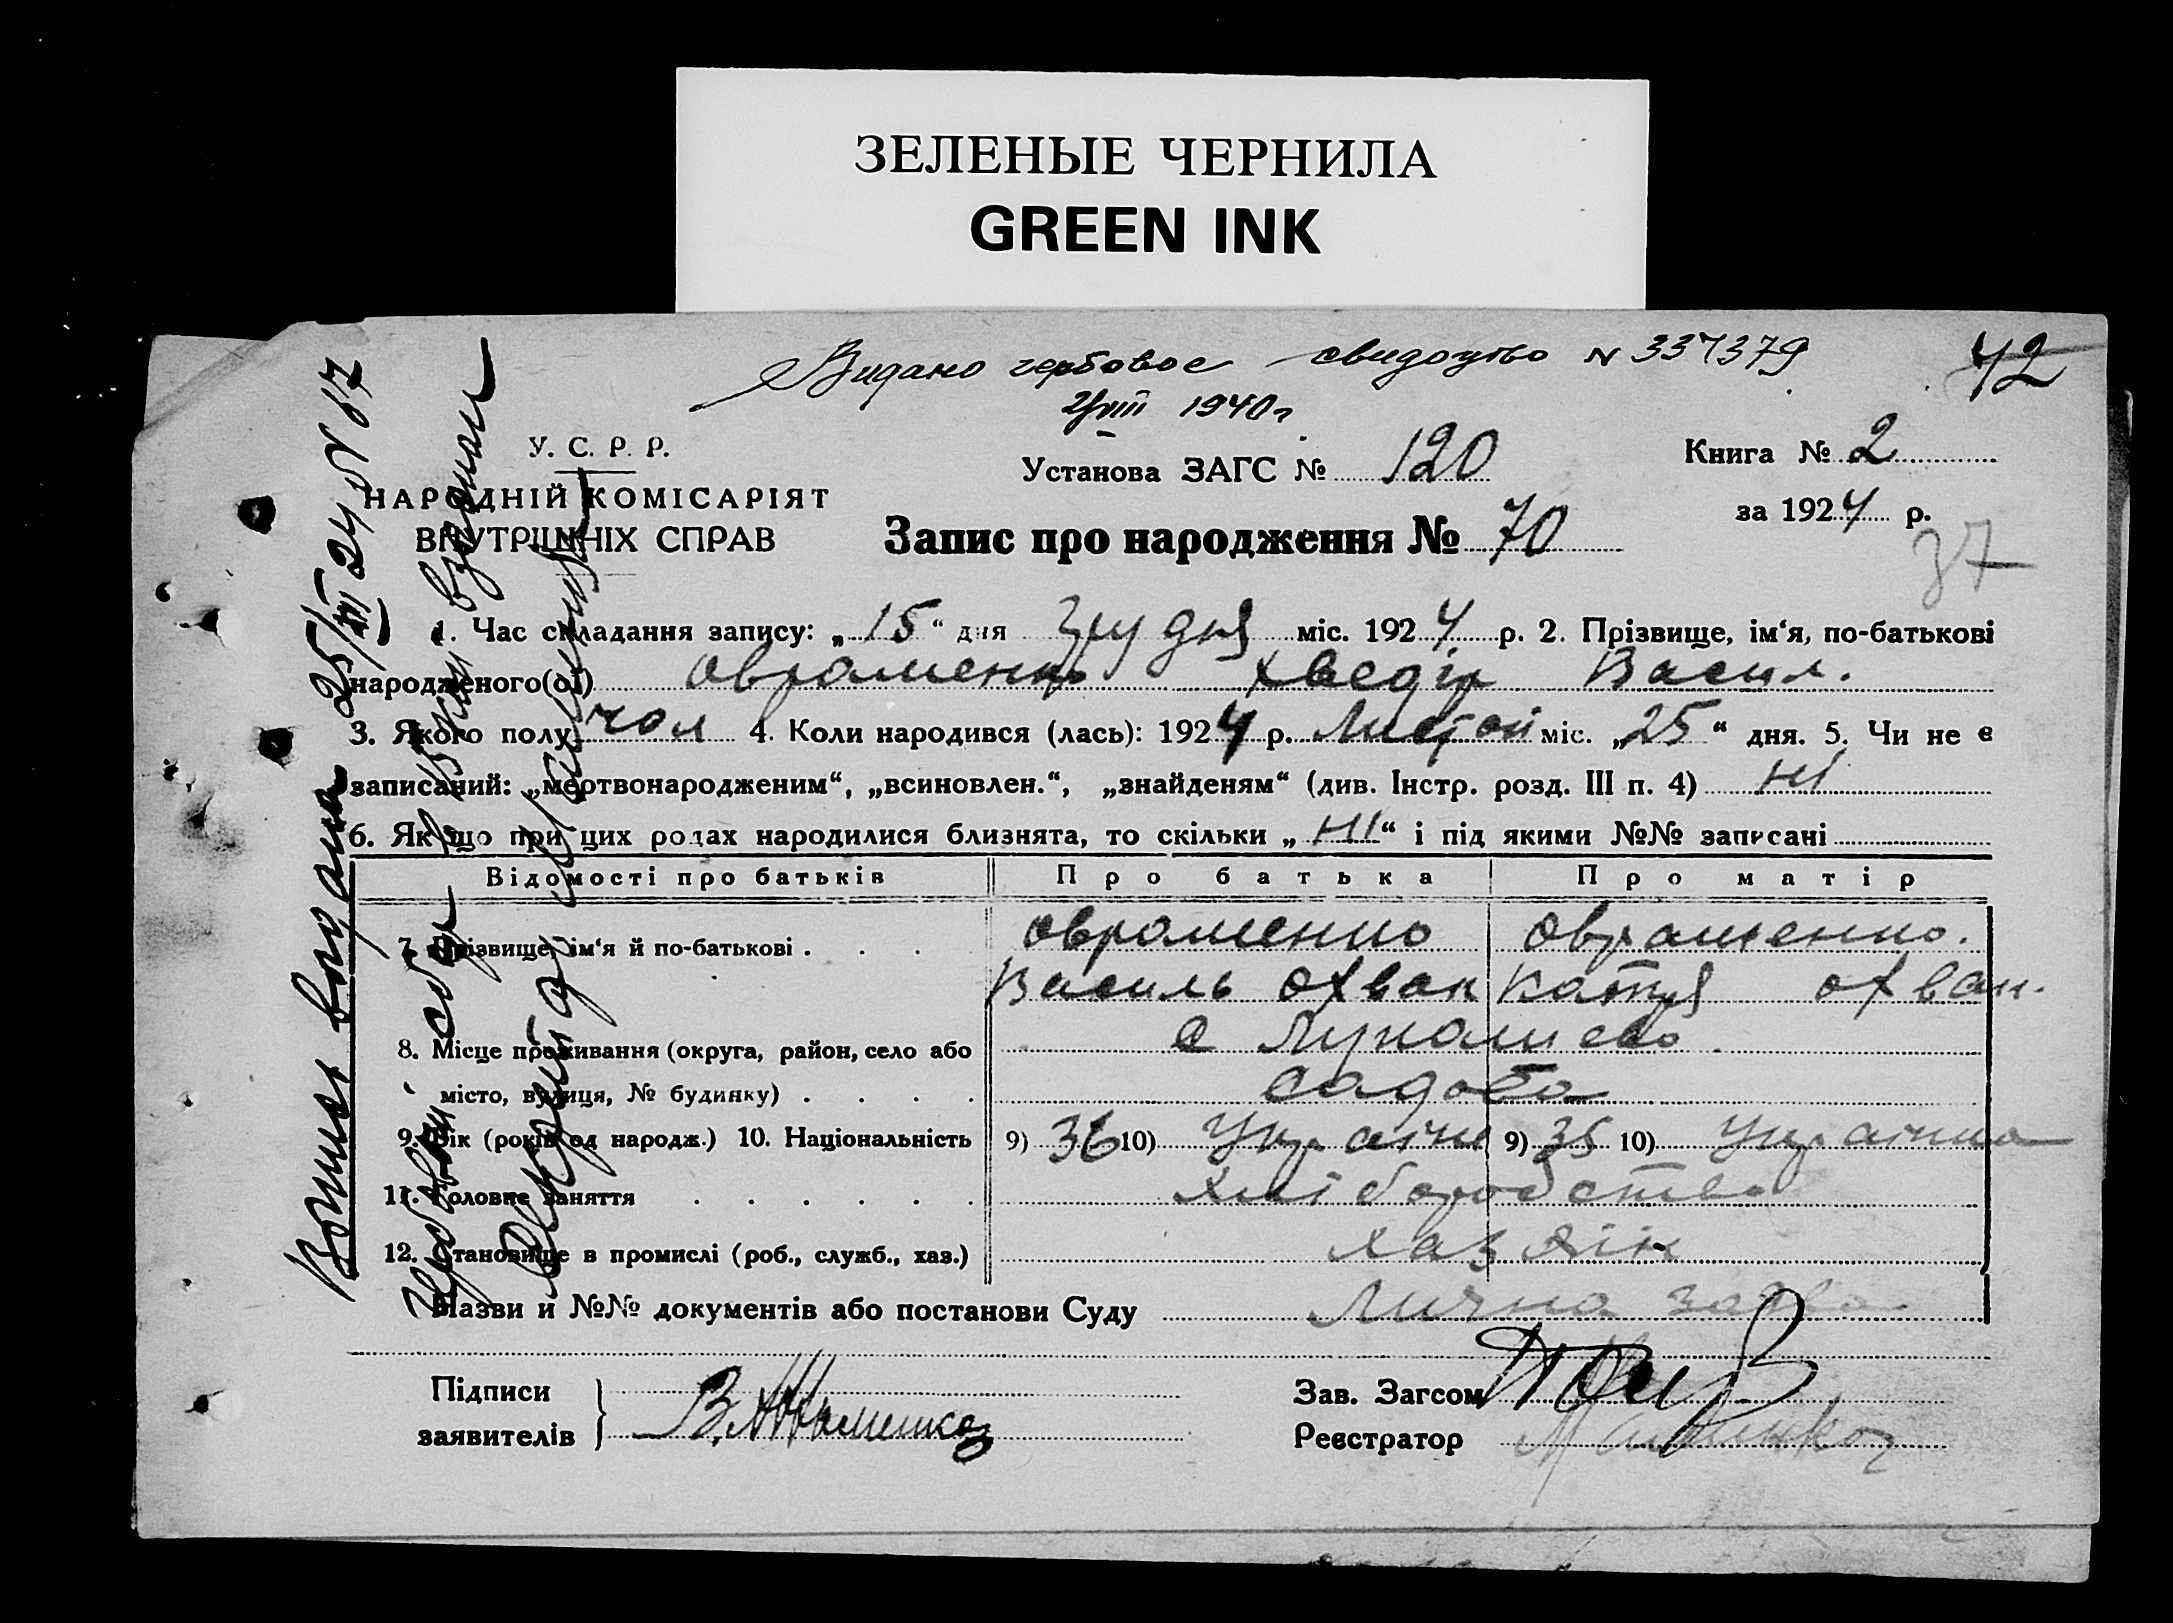 ЗЕЛЕНЫЕ ЧЕРНИЛА
GREEN INK
Видано гербовое свидоцтво N 337379
VIII 1940 г
42
У. С. Р. Р.
НАРОДНІЙ КОМІСАРІЯТ
ВНУТРІШНІХ СПРАВ
Установа ЗАГС № 120
Книга № 2
за 1924 р.
37
Запис про народження № 70
1. Час складання запису: „15“ дня Грудня міс. 1924 р. 2. Прізвище, ім‘я, по-батькові
народженого(ої) Овраменко Хведір Васил.
3. Якого полу чол 4. Коли народився (лась): 1924 р. Листоп міс. „25“ дня. 5. Чи не є
записаний: „мертвонародженим“, „всиновлен.“, „знайденям“ (див. Інстр. розд. III п. 4) Ні
6. Якщо при цих родах народилися близнята, то скільки „Ні“ і під якими №№ записані
Відомості про батьків Про батька Про матір
7. Прізвище, ім‘я й по-батькові . . . Овраменко Овраменко.
Василь Охван Катря Охван.
8. Місце проживання (округа, район, село або с
місто, вулиця, № будинку) . . . . Садова
9. Вік (років од народж.) 10. Національність 9) 36 10) Украін 9) 35 10) Украінка
11. Головне заняття . . . . . . Хліборобство
12. Становище в промислі (роб., служб., хаз.) хазяїн
Назви и №№ документів або постанови Суду Лична заява.
Підписи
заявителів
Зав. Загсом
Реєстратор
Вопись видана 25/XII 24 N 67